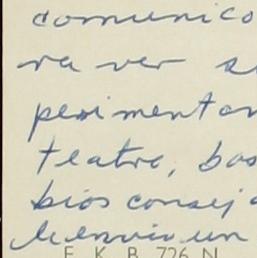 comunico
ra ver s
perimentar
teatro, bas
bios consej
le envio un
E. K. B. 726 N